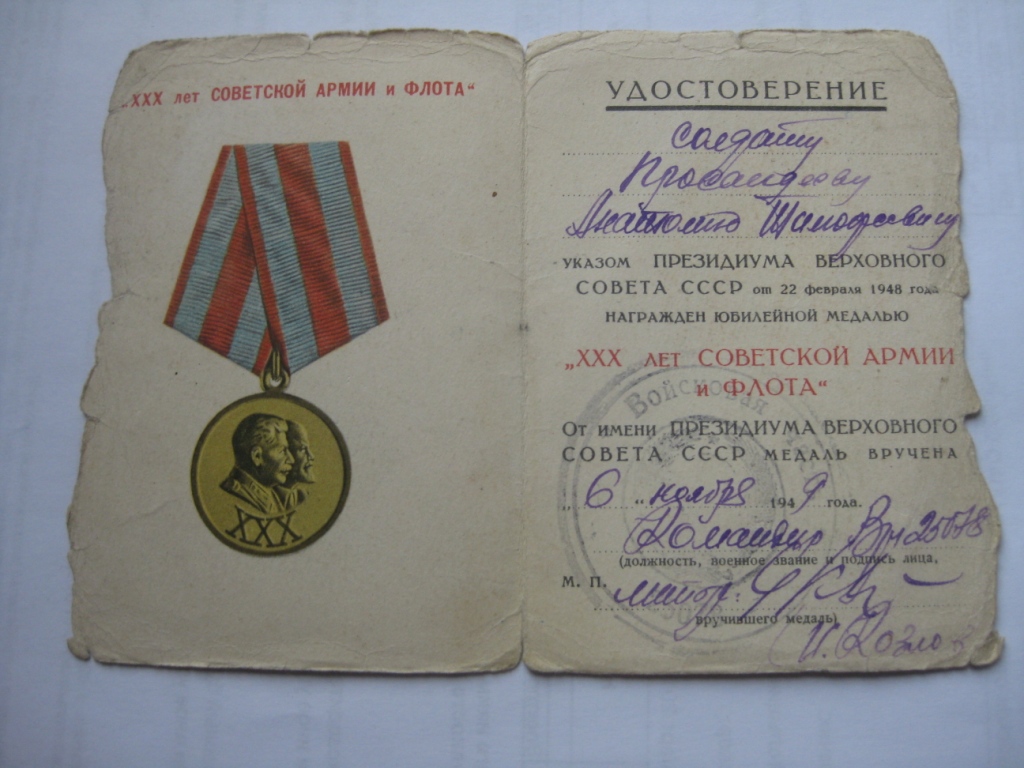 „XXX лет СОВЕТСКОЙ АРМИИ и ФЛОТА“
XXX
УДОСТОВЕРЕНИЕ
солдату
Анатолию
УКАЗОМ ПРЕЗИДИУМА ВЕРХОВНОГО
СОВЕТА СССР от 22 февраля 1948 года
НАГРАЖДЕН ЮБИЛЕЙНОЙ МЕДАЛЬЮ
„XXX ЛЕТ СОВЕТСКОЙ АРМИИ
и ФЛОТА“
От имени ПРЕЗИДИУМА ВЕРХОВНОГО
СОВЕТА СССР МЕДАЛЬ ВРУЧЕНА
„6„ ноября 1949 года.
Командир В/ч 25678
(должность, военное звание и подпись лица,
М. П. майор:
вручившего медаль)
И. Козлов
Войсковая